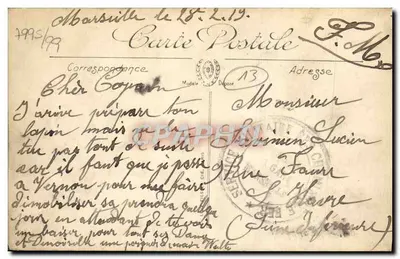 Marseille le 28-2-19.
7995/99
F. M.
Carte Postale
Correspondance
Adresse
Modèle Déposé
13
Cher Copain
J'arive prépare ton
lapin mais ne le
tue pas tout de suite
car il faut que je passe
a Vernon pour me faire
démobiliser sa prendra quelque
jour en attendant de te voir
un baiser pour tout ses Dame
et Demoiselle une poignée de main
Monsieur
Lucien
Rue Faure
Le Havre
(Seine Inférieure)